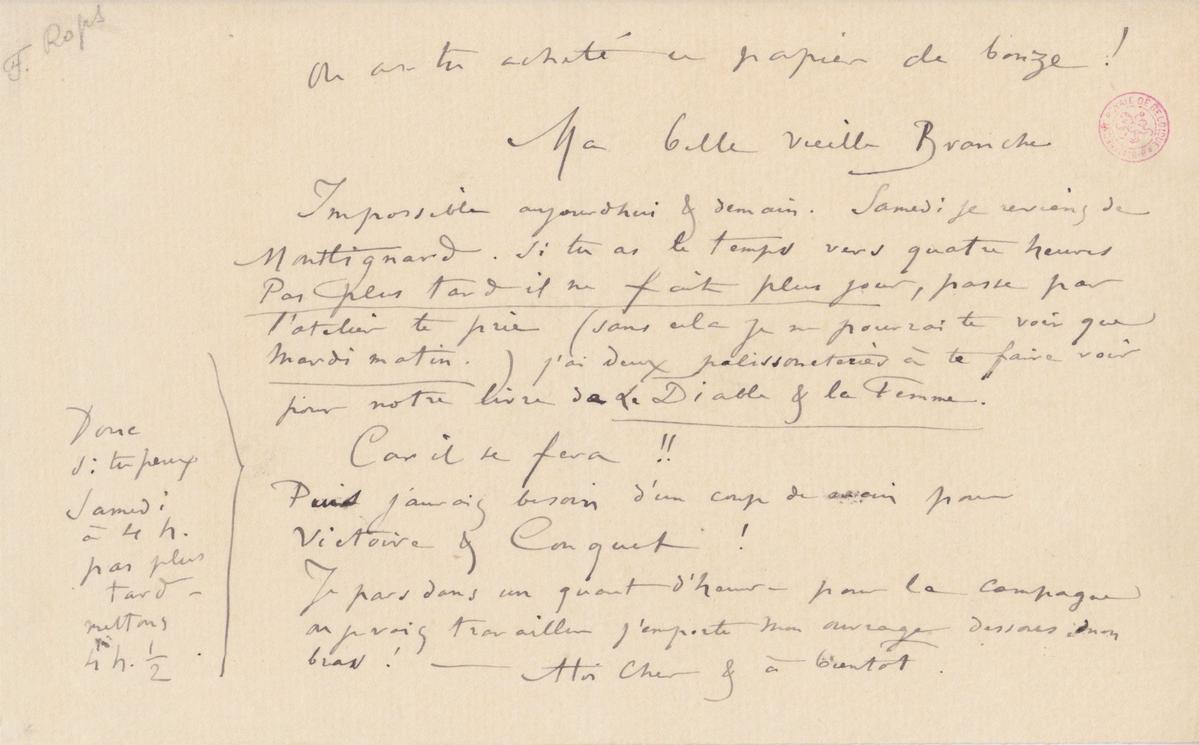 F. Rops
Où as tu acheté ce papier de bonze !
Ma belle vieille Branche
Impossible aujourdhui & demain. Samedi je reviens de
Montignard. Si tu as le temps vers quatre heures
Pas plus tard il ne fait plus jour, passe par
l'atelier te prie (sans cela je ne pourrai te voir que
Mardi matin.) j'ai deux polissonneries à te faire voir
pour notre livre de Le Diable & la Femme.
Car il se fera !!
Puis j'aurais besoin d'un coup de main pour
Victoire & Conquet !
Je pars dans un quart d'heure pour la campagne
où je vais travailler j'emporte mon ouvrage dessous mon
bras ! — Toi Cher & à bientôt.
Donc
si tu peux
Samedi
à 4 h.
pas plus
tard –
mettons
4 h. ½